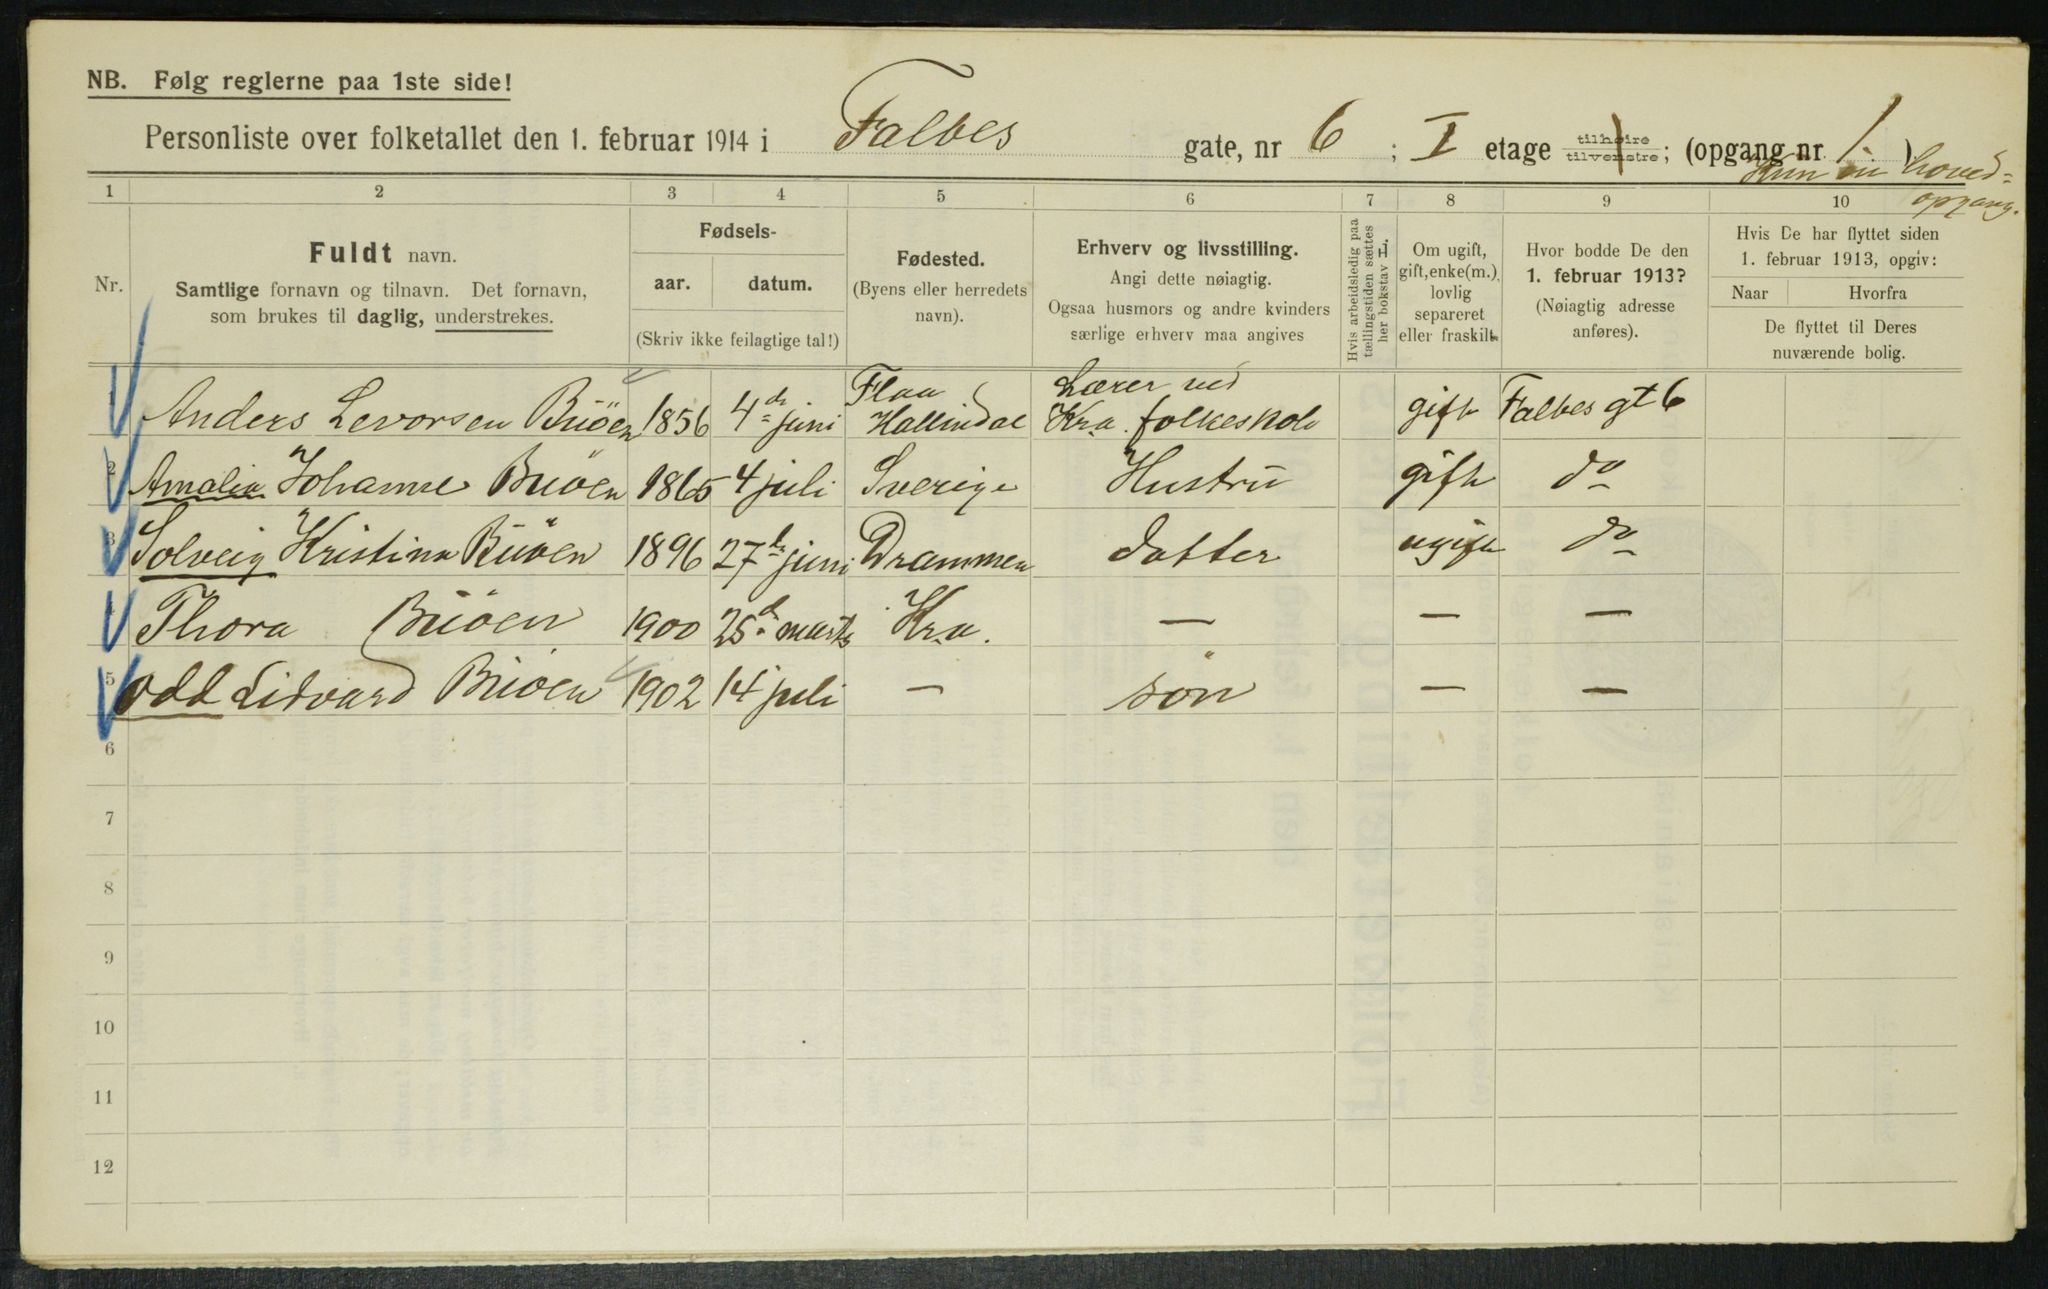 NB. Følg reglerne paa 1ste side!
Personliste over folketallet den 1. februar 1914 i Falbes gate, nr 6 ; I etage tilhøire tilvenstre ; (opgang nr 1. )
Kun en hoved=
opgang.
1 2 3 4 5 6 7 8 9 10
Nr.
Fuldt navn.
Samtlige fornavn og tilnavn. Det fornavn,
som brukes til daglig, understrekes.
Fødsels-
aar. datum.
(Skriv ikke feilagtige tal!)
Fødested.
(Byens eller herredets
navn).
Erhverv og livsstilling.
Angi dette nøiagtig.
Ogsaa husmors og andre kvinders
særlige erhverv maa angives
Hvis arbeidsledig paa
tællingstiden sættes
her bokstav L.
Om ugift,
gift, enke(m.),
lovlig
separeret
eller fraskilt.
Hvor bodde De den
1. februar 1913?
(Nøiagtig adresse
anføres).
Hvis De har flyttet siden
1. februar 1913, opgiv:
Naar Hvorfra
De flyttet til Deres
nuværende bolig.
1 Anders Levorsen Büöen 1856 4de juni Flaa Hallindal Lærer ved Kra. folkeskole gift Falbes gt 6
2 Amalia Johanne Büöen 1865 4 juli Sverige Hustru gift do
3 Solveig Kristina Büöen 1896 27de juni Drammen datter ugift do
4 Thora Büöen 1900 25de marts Kra. — — —
5 Odd Lidvard Büöen 1902 14 juli — sön — —
6
7
8
9
10
11
12